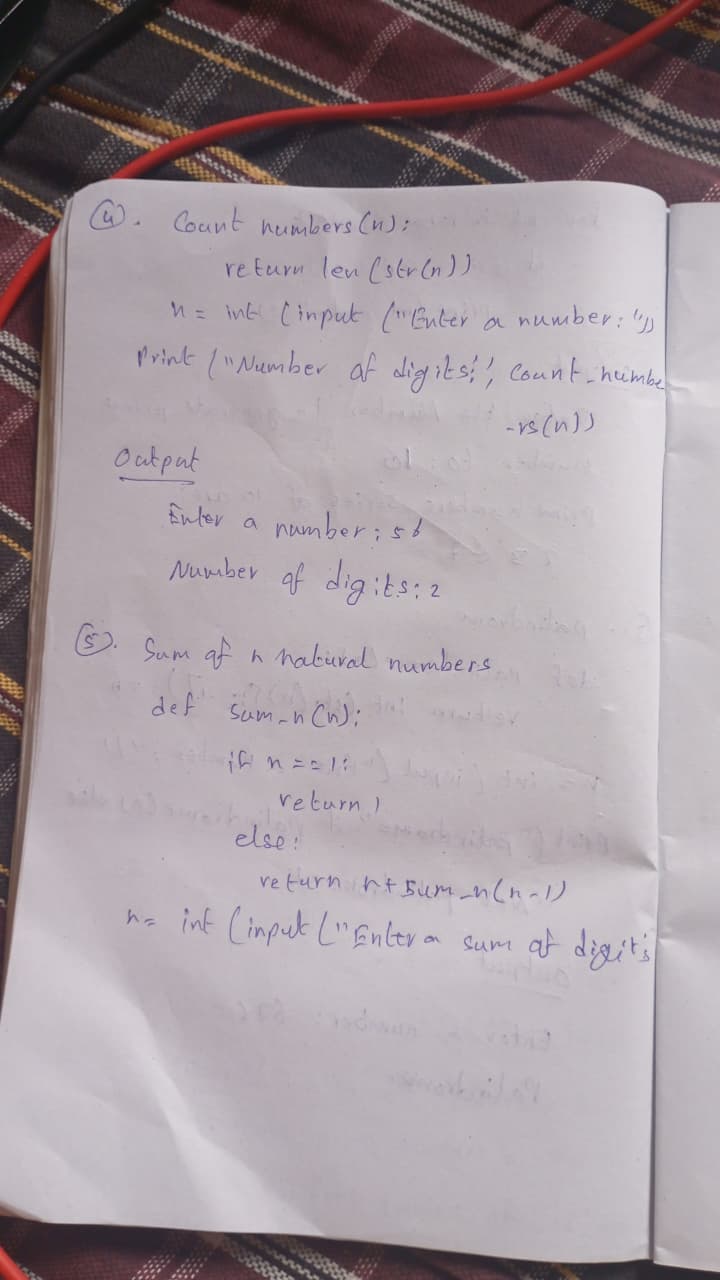 (4). Count numbers(n):
return len(str(n))
n = int (input ("Enter a number: "))
Print ("Number of digits:", Count_numbe
-rs(n))
Output
Enter a number: 56
Number of digits: 2
(5). Sum of n natural numbers
def sum_n(n):
if n == 1:
return 1
else:
return n+sum_n(n-1)
n= int (input ("Enter a sum of digits